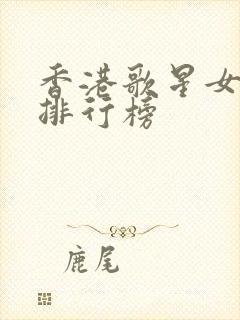 香港歌星女
排行榜
鹿尾